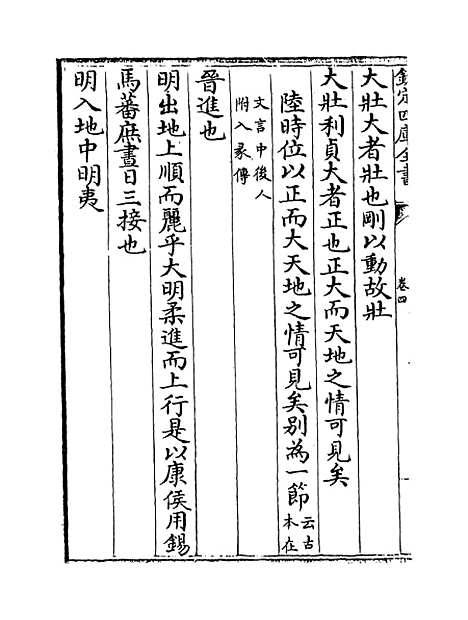 欽定四庫全書
卷四
大壯大者壯也剛以動故壯
大壯利貞大者正也正大而天地之情可見矣
陸時位以正而大天地之情可見矣別為一節云古本在
文言中後人附入彖傳
晉進也
明出地上順而麗乎大明柔進而上行是以康侯用錫
馬蕃庶晝日三接也
明入地中明夷